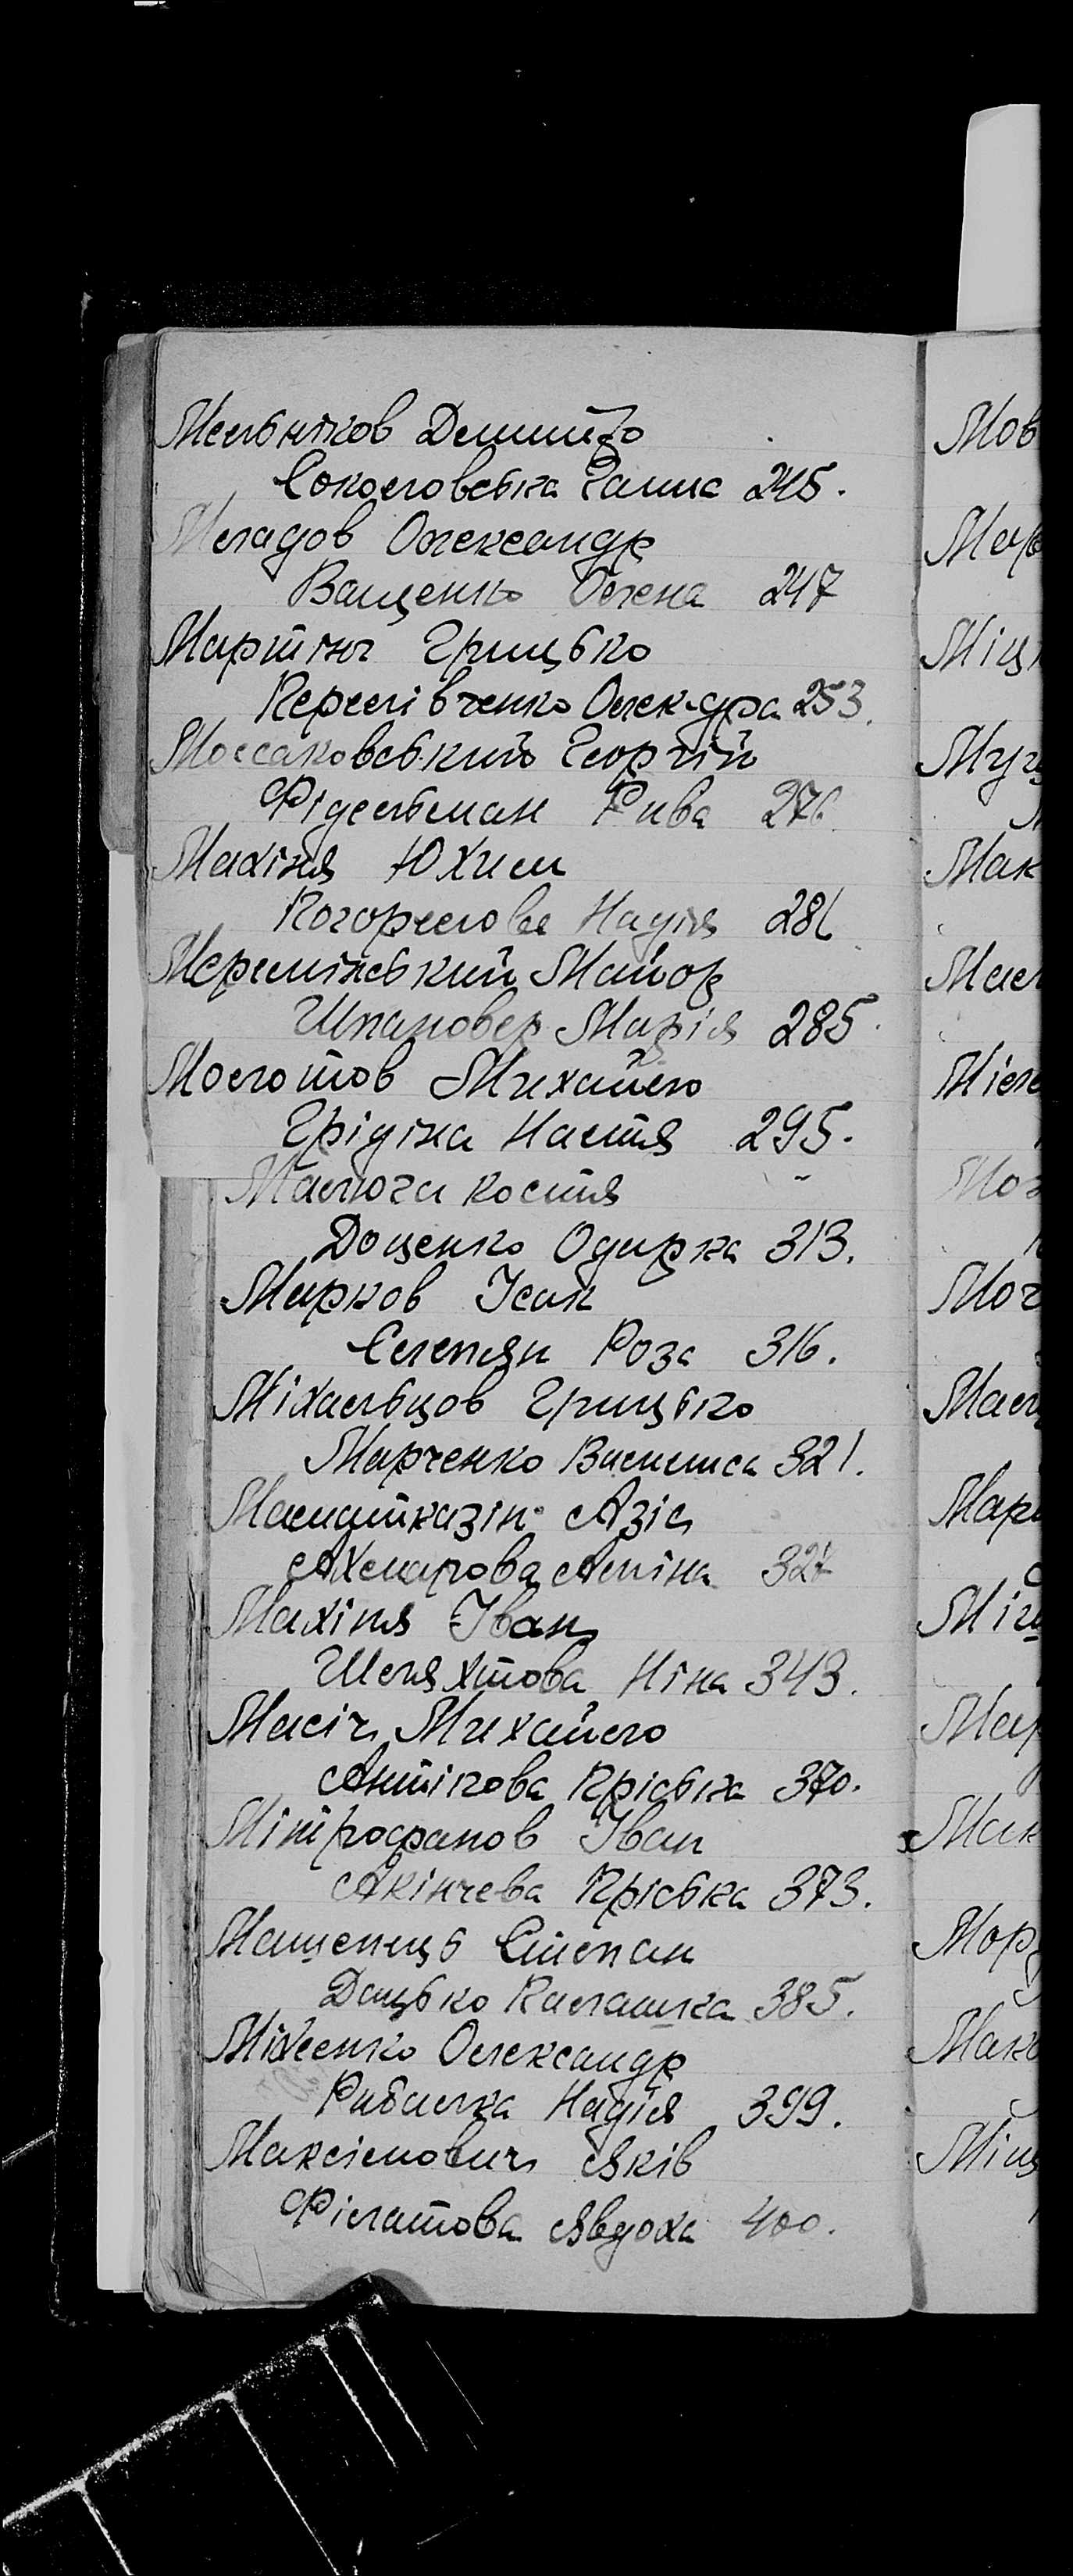 Мельніков Дмитро
Соколовська Ганна 245.
Моладов Олександр
Ващенко Олена 247
Мартінь Грицько
Перелівченко Олек-дра 253.
Моссаковський Георгій
Фідельман Рива 276
Махіня Юхим
Погорелова Надія 281
Мермінський Майор
Шпановер Марія 285.
Молотов Михайло
Грідіна Настя 295.
Малюга Костя
Доценко Одарка 313.
Марков Ісак
Слепян Роза 316.
Міхальцов Грицько
Марченко Василиса 321.
Маматказін Азіс
Ахмарова Аміна 327
Махіня Іван
Шеляхтова Ніна 343.
Масіч Михайло
Антікова Пріська 370.
Мітрофанов Іван
Акінчева Пріська 373.
Машенець Степан
Дацько Палашка 385.
Міхеенко Олександр
Рибалка Надія 399.
Максімович Яків
Філатова Явдоха 400.
Мов
Мар
Міц
Муч
Мак
Мал
Міл
Моз
Моч
Мал
Мар
Міщ
Мар
Мак
Мор
Мако
Міщ